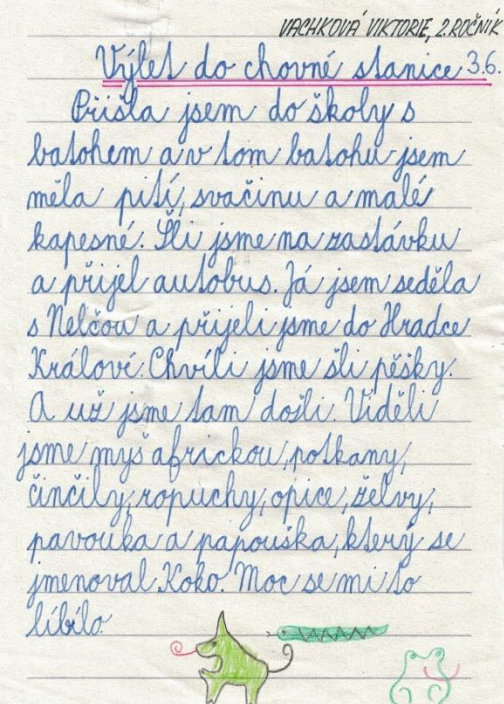 VACHKOVÁ VIKTORIE, 2. ROČNÍK
Výlet do chovné stanice 3.6.
Přišla jsem do školy s
batohem a v tom batohu jsem
měla pití, svačinu a malé
kapesné. Šli jsme na zastávku
a přijel autobus. Já jsem seděla
s Nelčou a přijeli jsme do Hradce
Králové. Chvíli jsme šli pěšky.
A už jsme tam došli. Viděli
jsme myš africkou, potkany,
činčily, ropuchy, opice, želvy,
pavouka a papouška, který se
jmenoval Koko. Moc se mi to
líbilo.